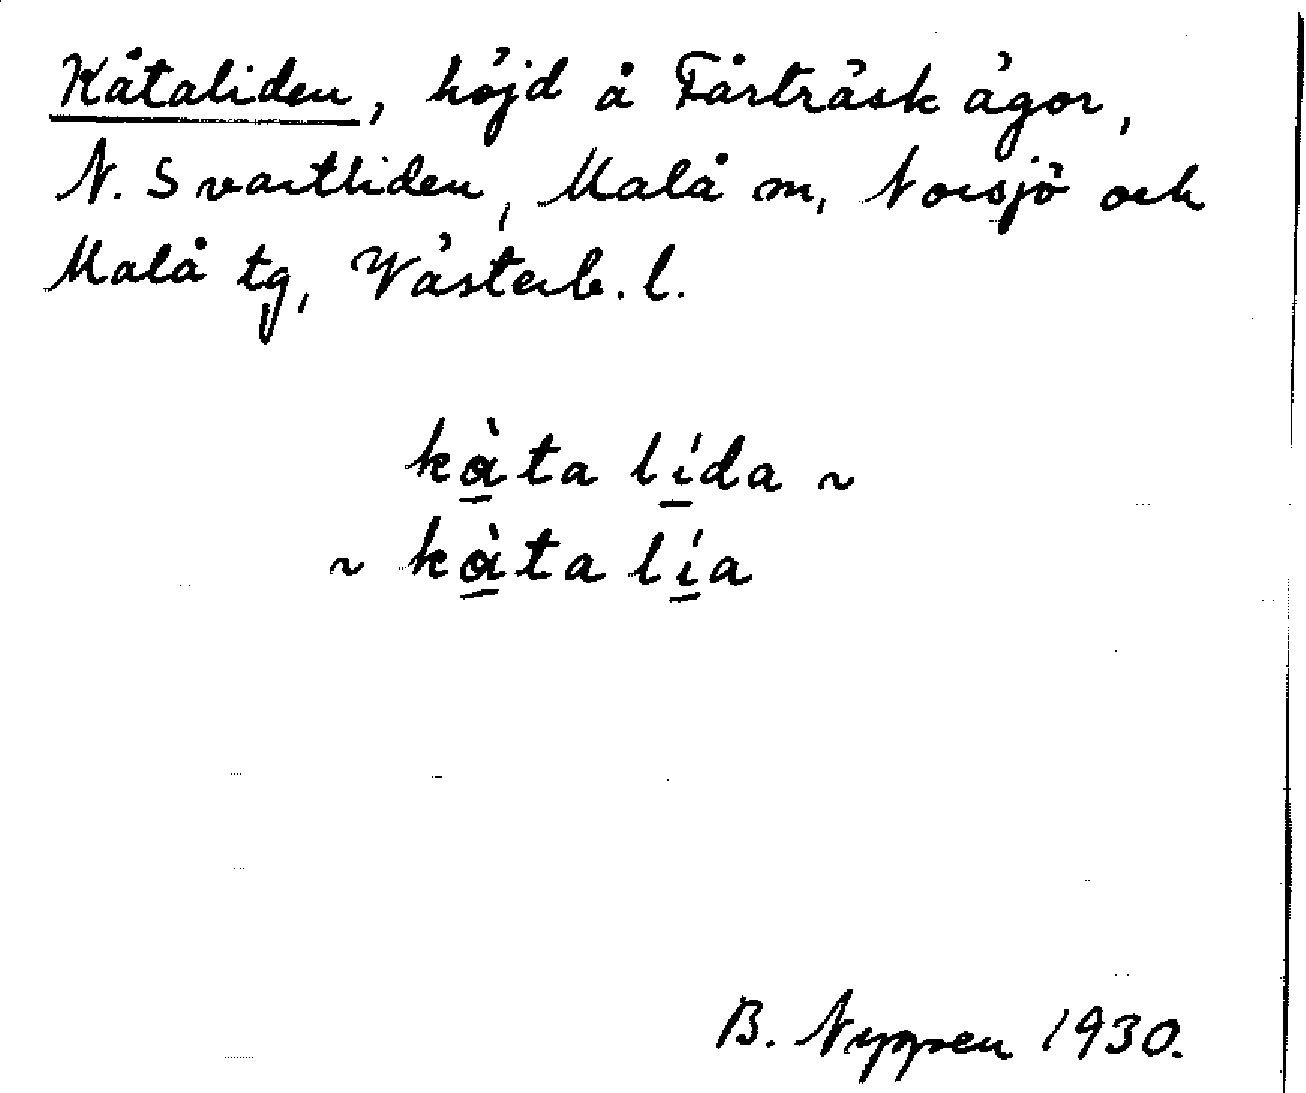 Kåtaliden, höjd å Fårträsk ägor,
N. Svartliden, Malå sn, Norsjö och
Malå tg, Västerb. l.
kɑ̠̀ta lí̠da ~
~ kɑ̠̀ta lí̠a
B. Nyppen 1930.